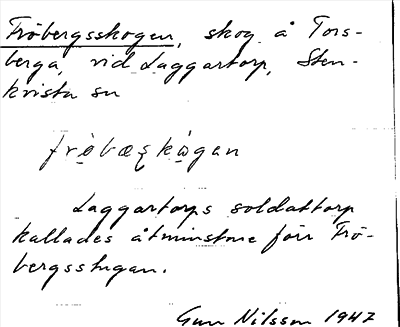 Fröbergsskogen, skog å Tors-
berga, vid Laggartorp, Sten-
kvista sn
frö̀bæʂkò̱gan
Laggartorps soldattorp
kallades åtminstone förr Frö-
bergsstugan.
Gun Nilsson 1947